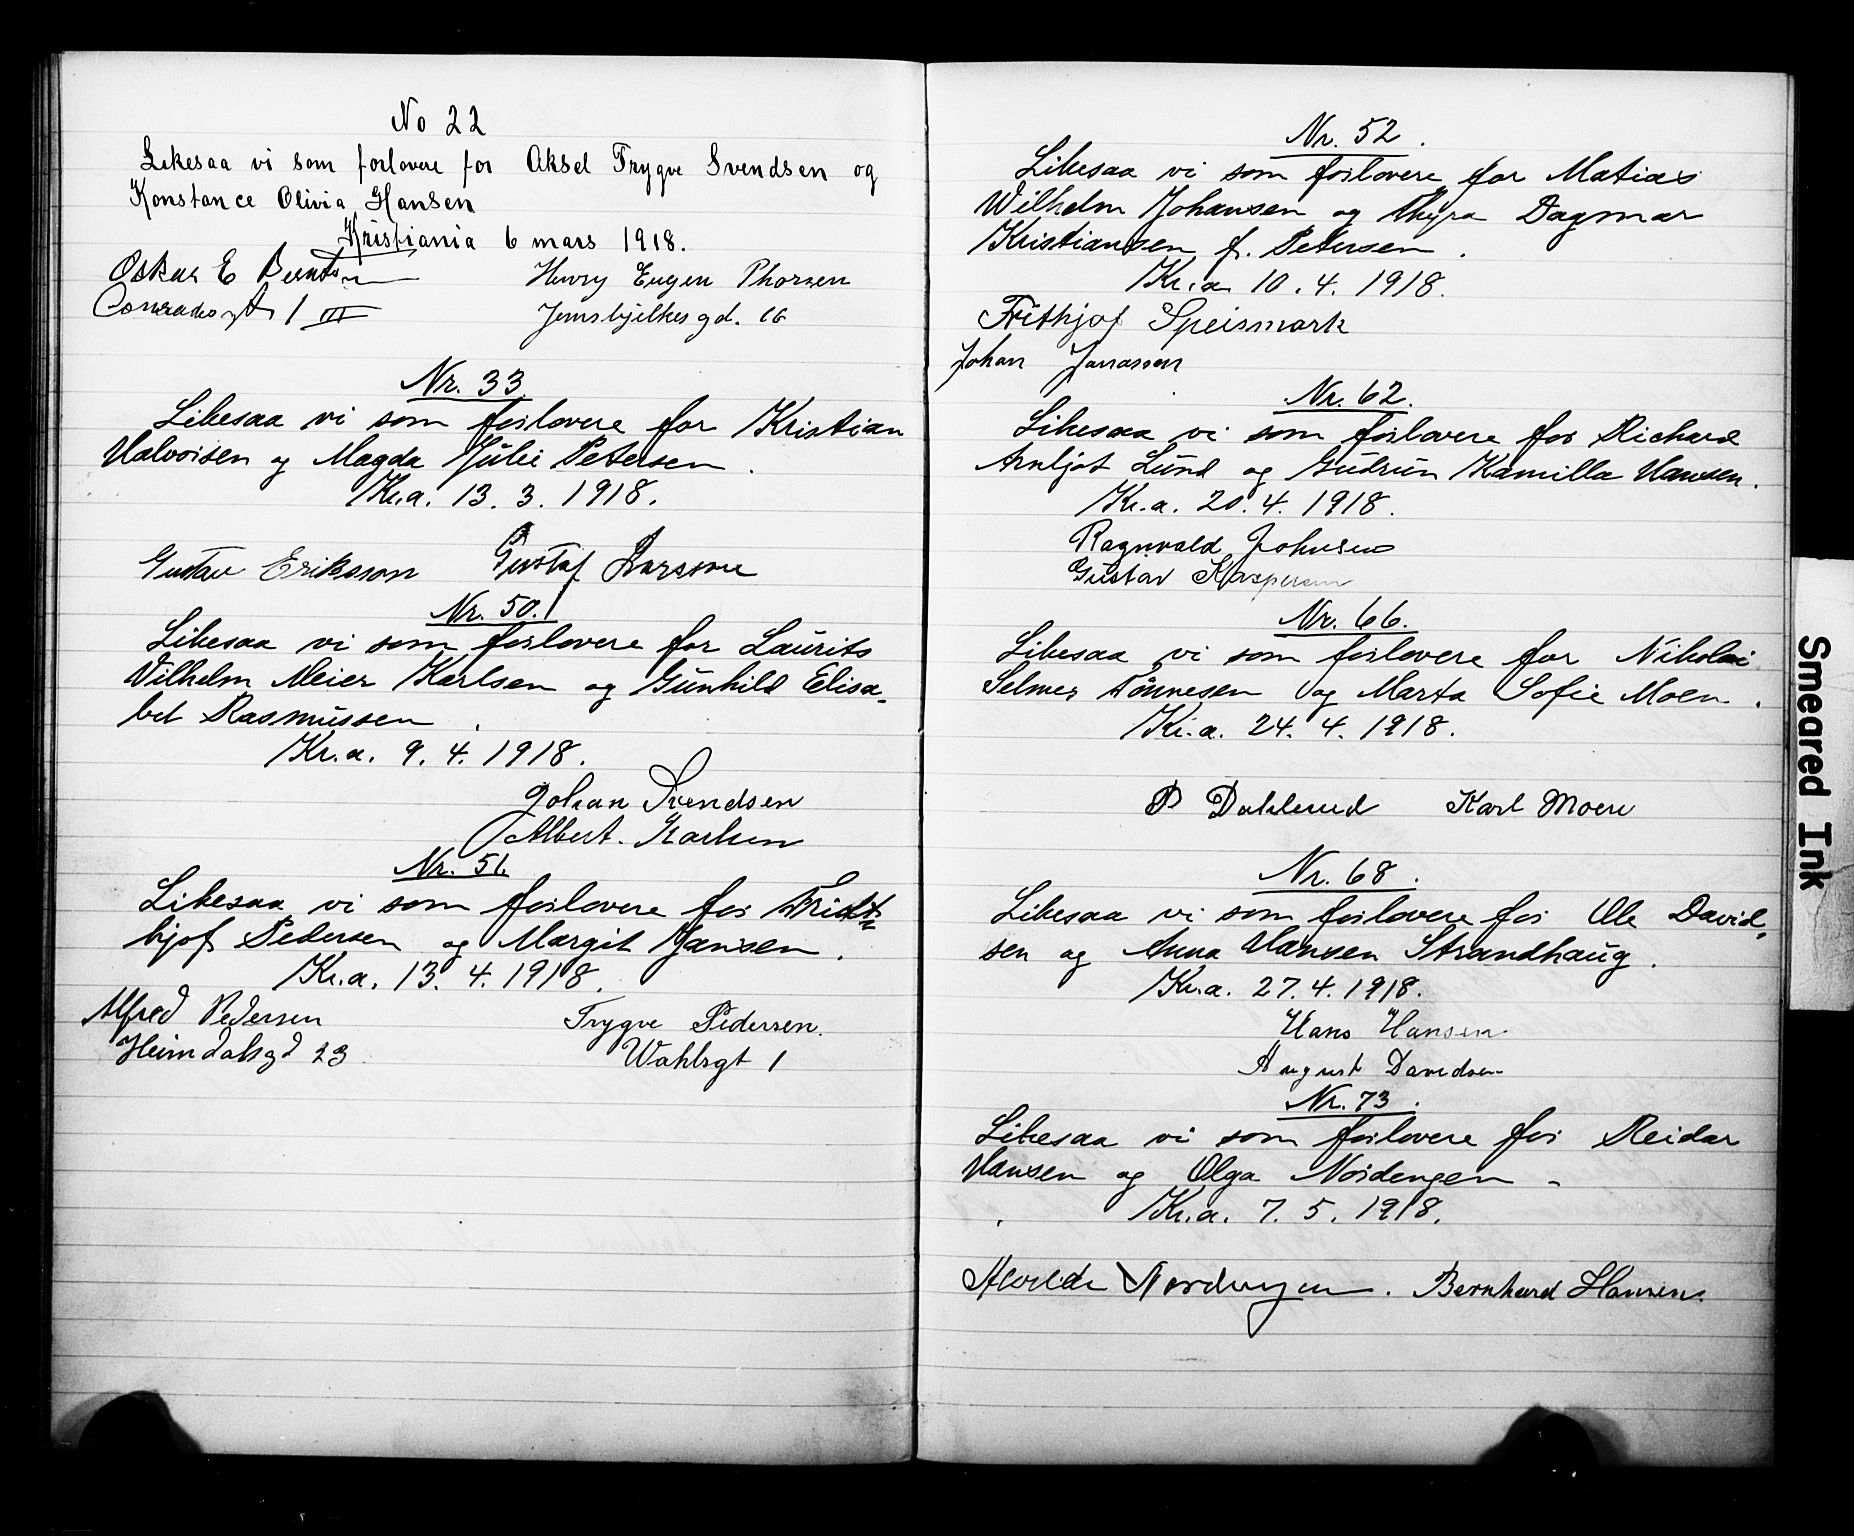 No 22
Likesaa vi som forlovere for Aksel Trygve Svendsen og
Konstance Olivia Hansen
Kristiania 6 mars 1918.
Oskar E Berntsen Henry Eugen Thorsen
Conradsgt 1 III Jensbjelkesgd. 16
Nr. 33
Likesaa vi som forlovere for Kristian
Halvorsen og Magda Julie Petersen.
Kr.a. 13. 3. 1918.
Gustav Eriksson Gustaf Larsson
Nr. 50.
Likesaa vi som forlovere for Laurits
Vilhelm Meier Karlsen og Gunhild Elisa-
bet Rasmussen.
Kr.a. 9. 4. 1918.
Johan Svendsen
Albert. Karlsen
Nr. 51.
Likesaa vi som forlovere for Fridt-
hjof Pedersen og Margit Jansen.
Kr.a. 13. 4. 1918.
Alfred Pedersen Trygve Pedersen.
Heimdalsgd 23 Wahlsgt 1
Nr. 52.
Likesaa vi som forlovere for Matias
Wilhelm Johansen og Thyra Dagmar
Kristiansen f. Petersen.
Kr.a 10. 4. 1918.
Frithjof Speismark
Johan Jonassen
Nr. 62.
Likesaa vi som forlovere for Richard
Arnljot Lund og Gudrun Kamilla Hansen.
Kr.a. 20. 4. 1918.
Ragnvald Johnsen
Gustav Kaspersen
Nr. 66.
Likesaa vi som forlovere for Nikolai
Selmer Tønnesen og Marta Sofie Moen.
Kr.a. 24. 4. 1918.
P Dahlerud Karl Moen
Nr. 68.
Likesaa vi som forlovere for Ole David-
sen og Anna Hansen Strandhaug.
Kr.a. 27. 4. 1918.
Hans Hansen
August Davidsen
Nr. 73.
Likesaa vi som forlovere for Reidar
Hansen og Olga Nordengen.
Kr.a. 7. 5. 1918.
Nordengen. Bernhard Hansen.
Smeared Ink